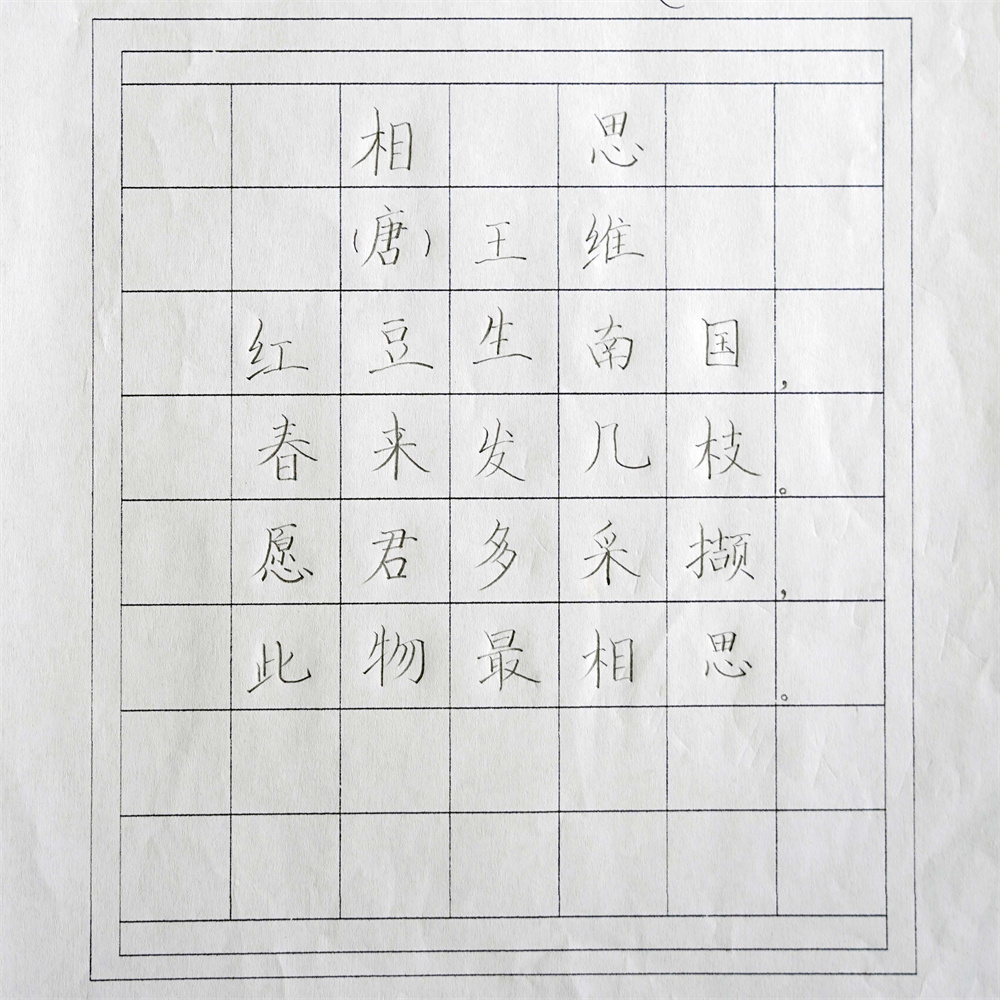 相思
（唐）王维
红豆生南国，
春来发几枝。
愿君多采撷，
此物最相思。